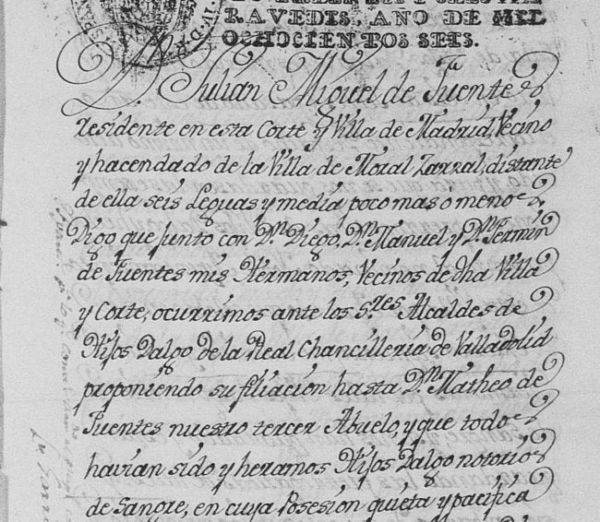 RAVEDIS, AÑO DE MIL
OCHOCIENTOS SEIS.
D. Julian Miguel de Fuentes
residente en esta Corte y Villa de Madrid, Vecino
y hacendado de la Villa de Moral Zarzal, distante
de ella seis Leguas y media poco mas o menos
Digo que junto con Dn. Diego, Dn. Manuel y Dn. Fermin
de Fuentes mis Hermanos, Vecinos de dha Villa
y Corte, ocurrimos ante los S.res Alcaldes de
Hijos Dalgo de la Real Chancilleria de Valladolid
proponiendo su filiacion hasta Dn. Matheo de
Fuentes nuestro tercer Abuelo, y que todos
havian sido y heramos Hijos Dalgo notorios
de Sangre, en cuya Posesión quieta y pacifica